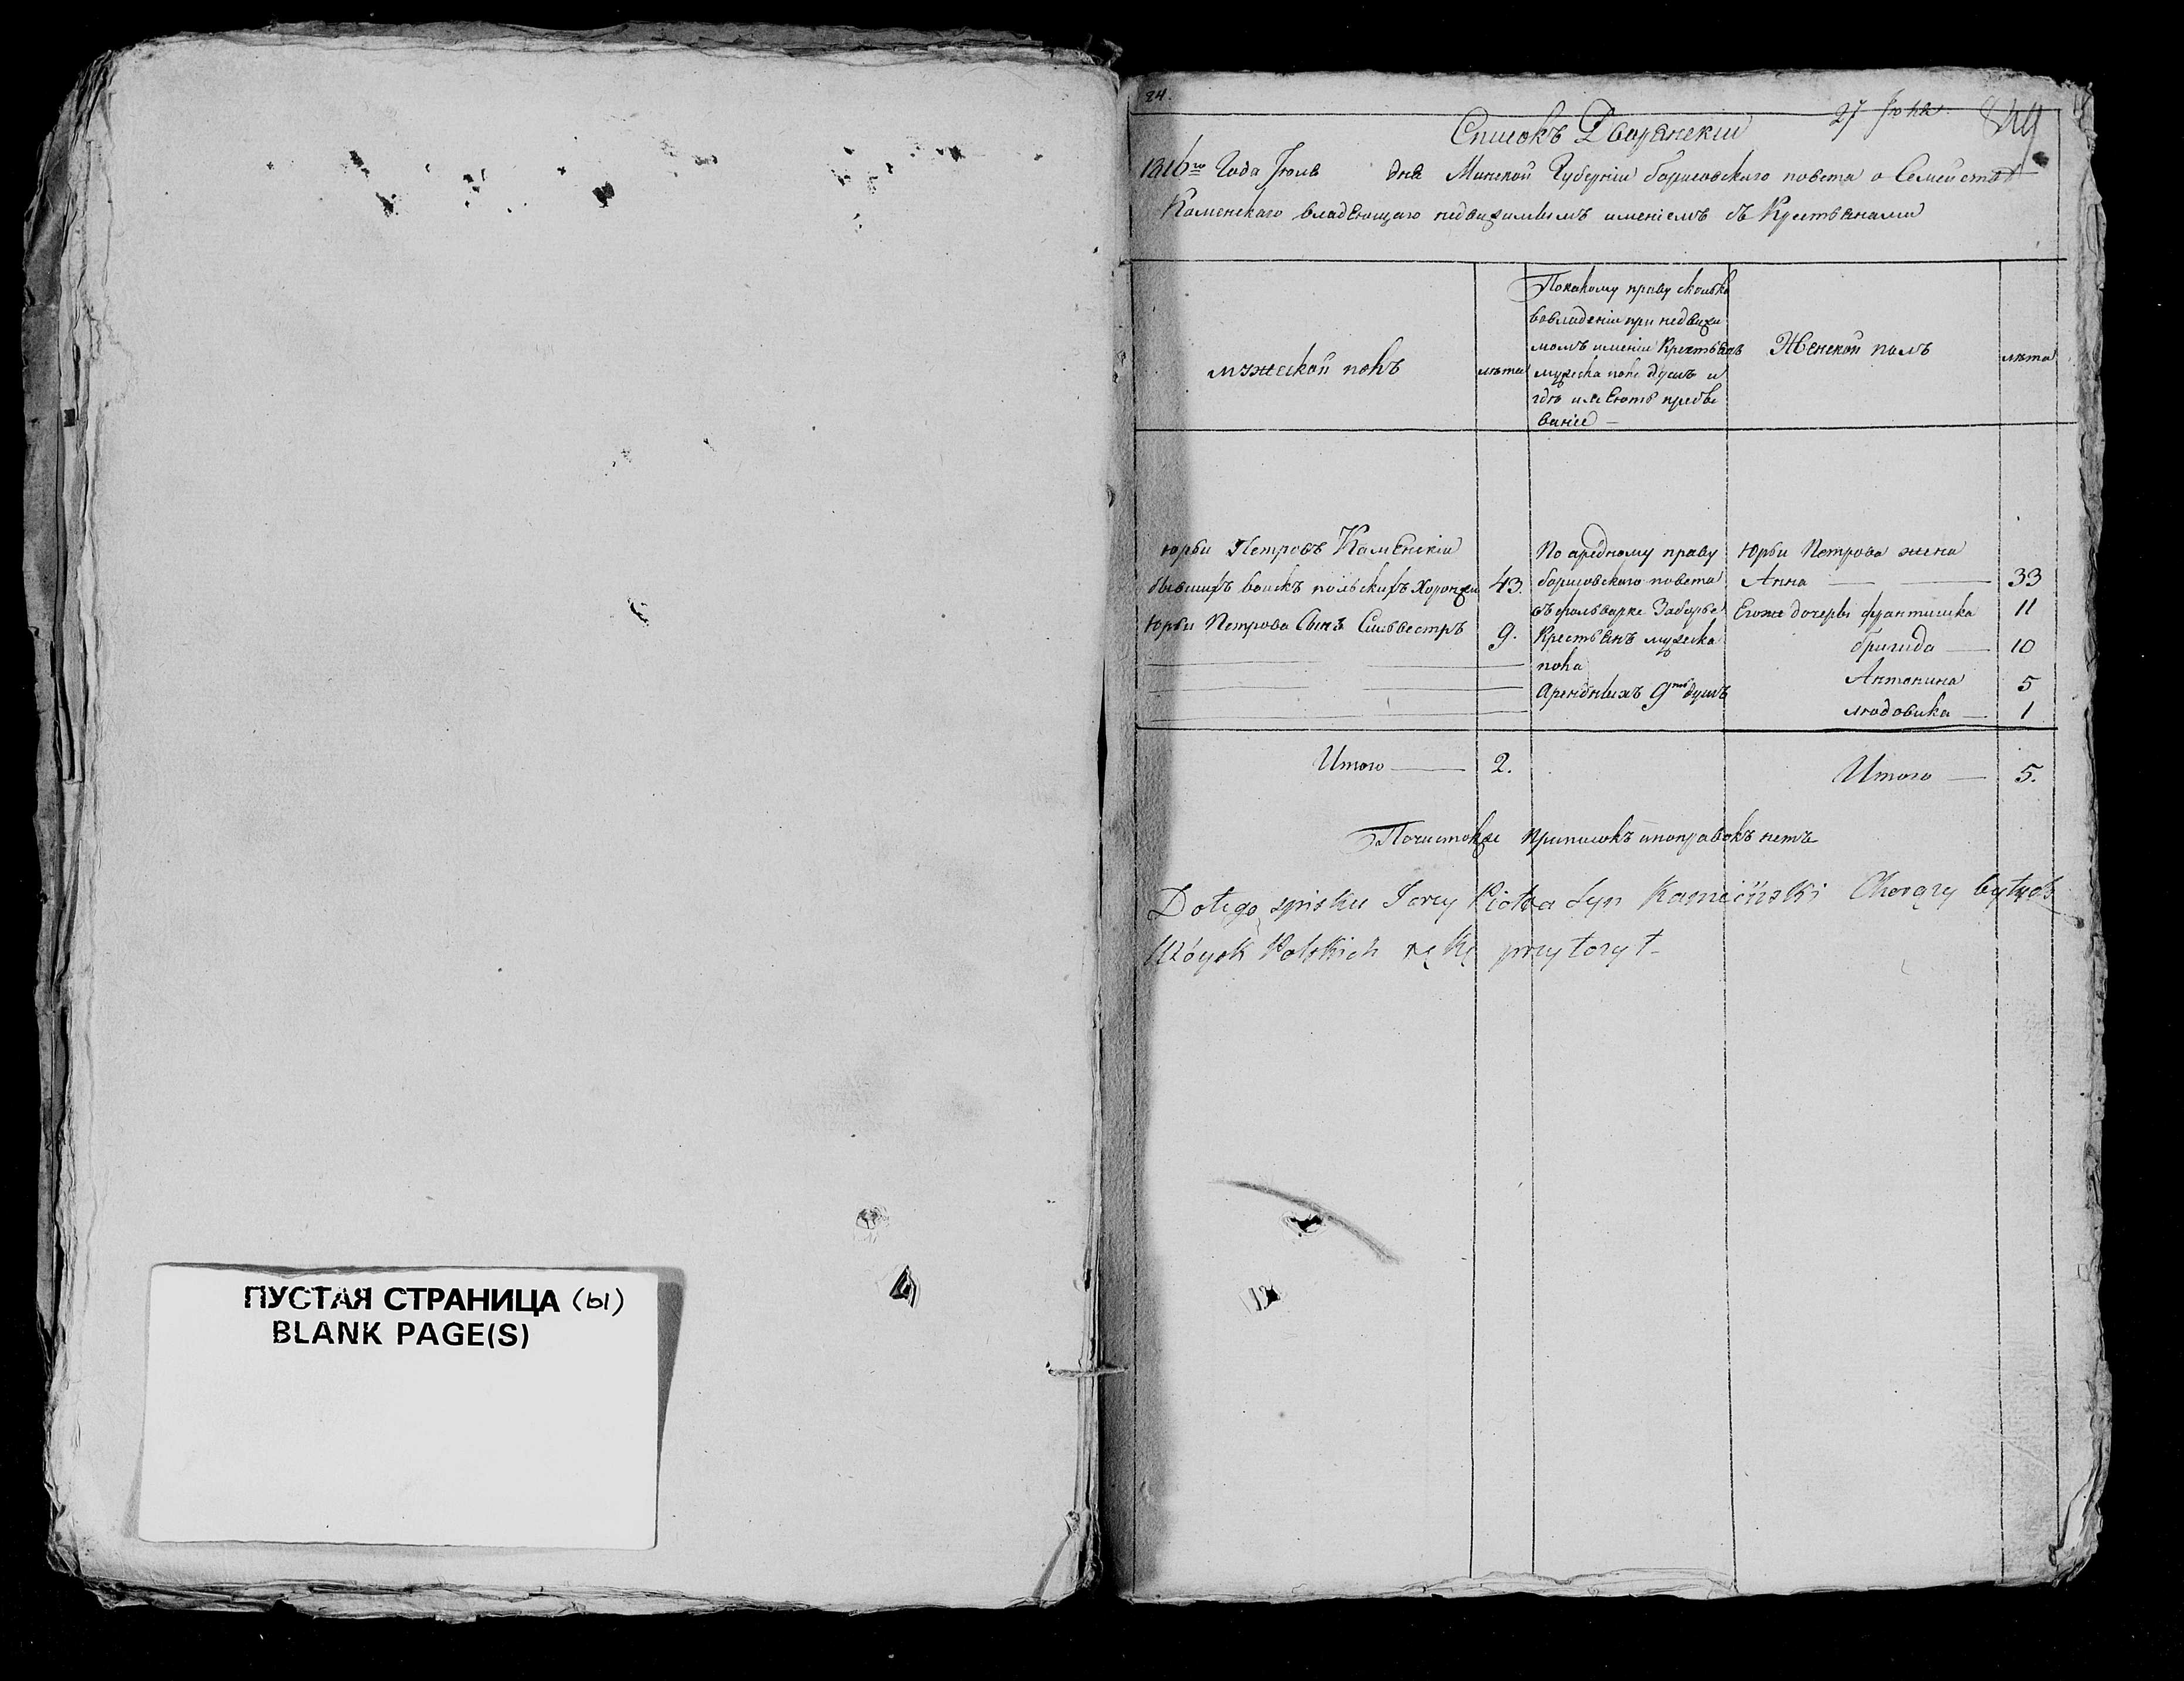 ПУСТАЯ СТРАНИЦА (ы)
BLANK PAGE(S)
84.
27 Июня
Списокъ Дворянскии
1816го Года Июля дня Минской Губернии борисовского повета о Семействе
Каменского владеющаго недвижимымъ имениемъ съ Крестьянами
мужеской полъ
лета
Покакому праву сколько
вовладении при недвижи
момъ имении Крестьянъ
мужеска пола душъ и
где имеютъ пребы
вание —
Женской полъ
лета
Юрьи Петровъ Каменский
бывшихъ воискъ польскихъ Хоронжи 43.
Юрьи Петрова Сынъ Сильвестръ 9.
По ареdному праву
борисовского повета
въ фольварке Заборье
Крестьянъ мужеска
пола
Арендныхъ 9ть душъ
Юрьи Петрова жена
Анна — 33
Егоже дочеры франтишка 11
бригида — 10
Антонина 5
людовика — 1
Итого — 2.
Итого — 5.
Почистокже приписокъ ипоправокъ нетъ
Dotego spisku Jerzy Piotra Syn Kamieński Chorąży byłych
Wóysk Polskich rękę przyłożył